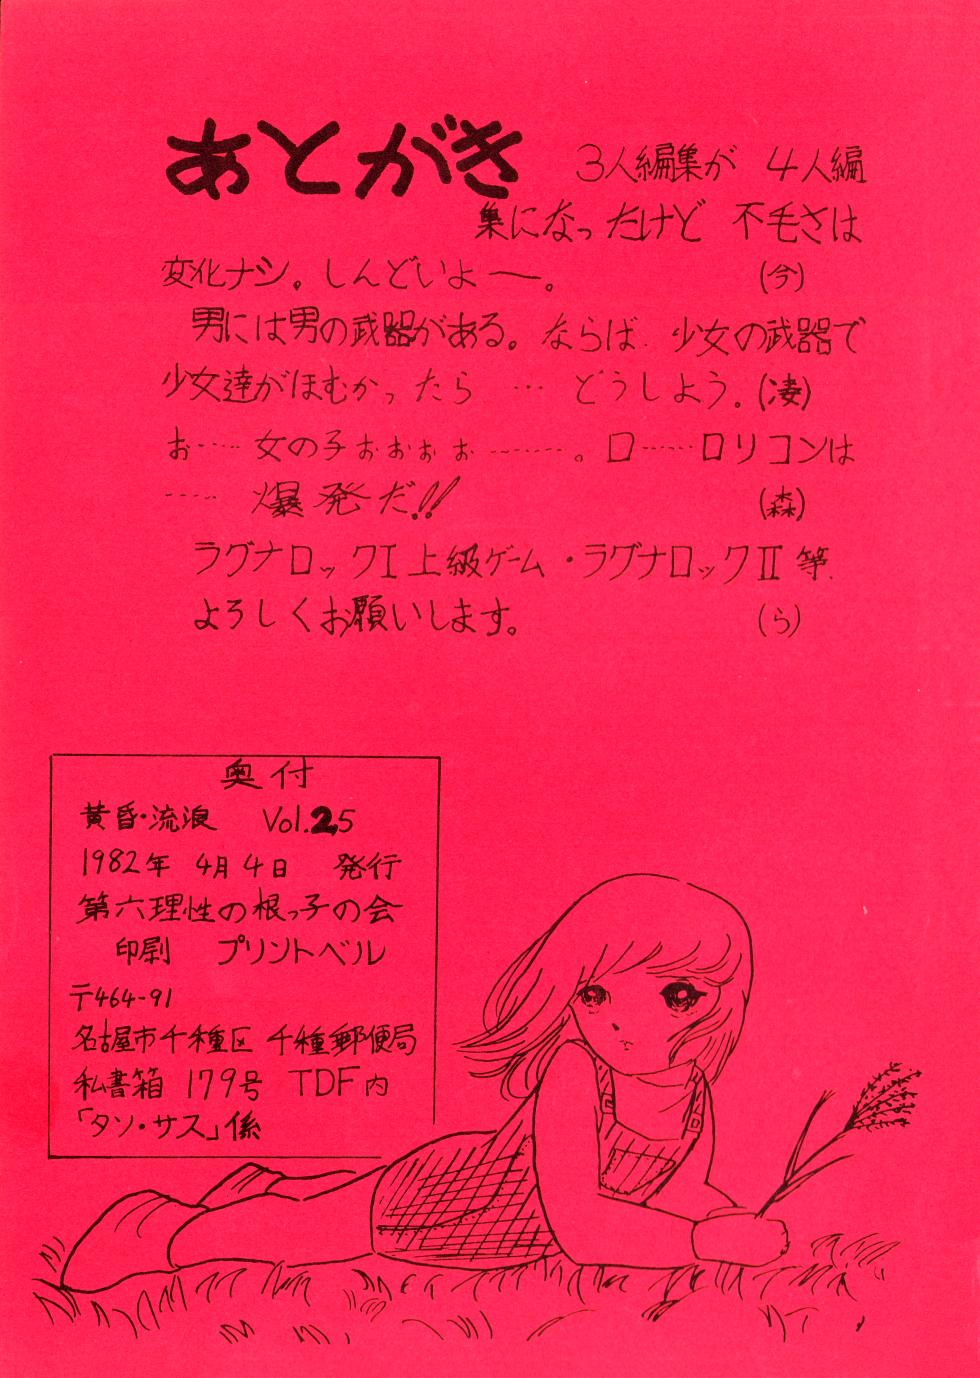 あとがき 3人編集が 4人編
集になったけど 不毛さは
変化ナシ。しんどいよー。 (今)
男には男の武器がある。ならば 少女の武器で
少女達がほむかったら … どうしよう。(凄)
ぉ…… 女の子ぉぉぉぉ ………。ロ……ロリコンは
…… 爆発だ!! (森)
ラグナロックI 上級ゲーム・ラグナロックII 等
よろしくお願いします。 (ら)
奥付
黄昏・流浪 Vol.25
1982年 4月4日 発行
第六理性の根っ子の会
印刷 プリントベル
〒464-91
名古屋市千種区 千種郵便局
私書箱 179号 TDF内
「タソ・サス」係